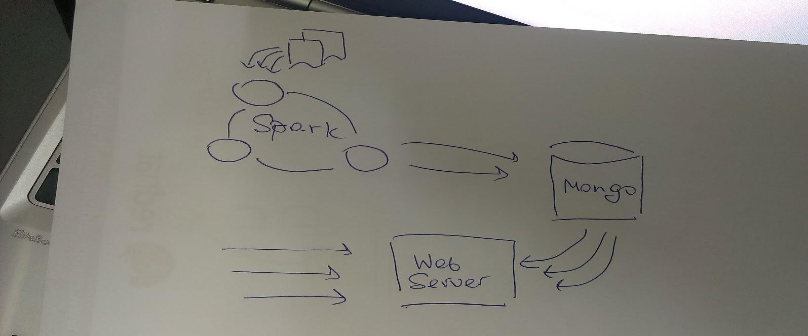 Spark
Mongo
Web
Server